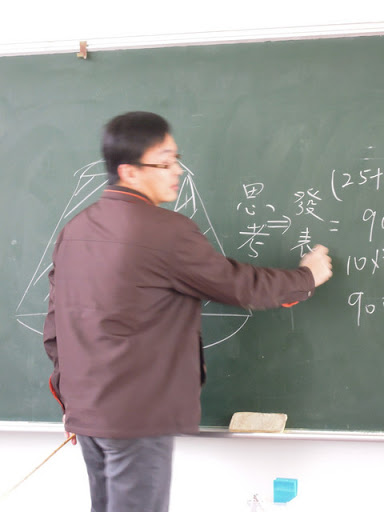 思考⇒發表
二
(25+
= 90
10×
90